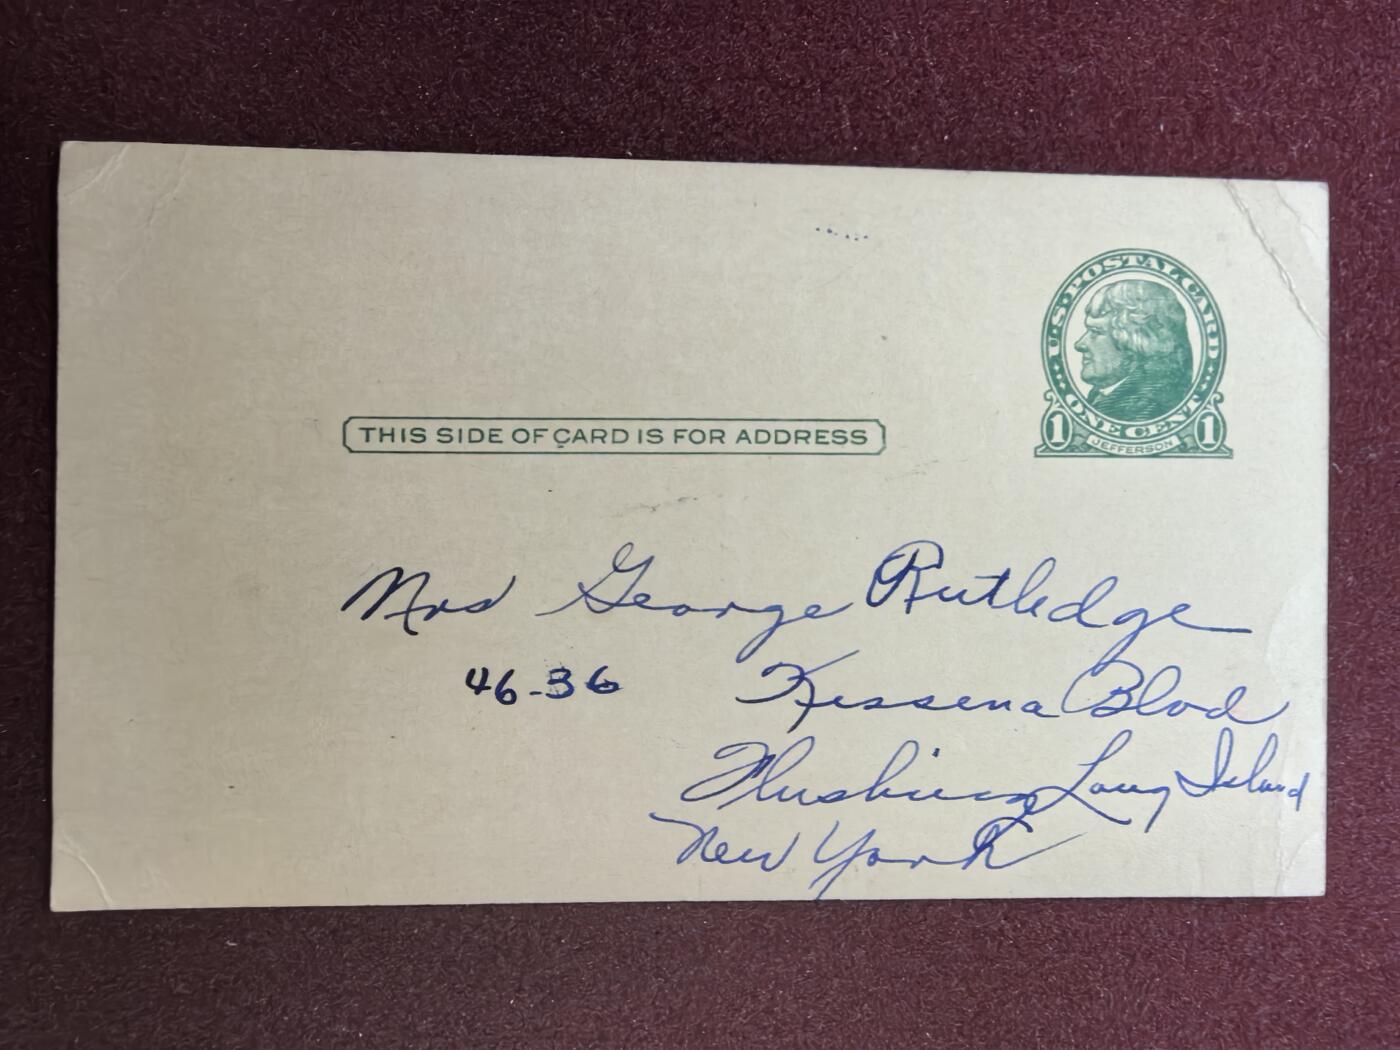 U.S. POSTAL CARD
ONE CENT
1 JEFFERSON 1
THIS SIDE OF CARD IS FOR ADDRESS
Mrs George Rutledge
46-36 Kissena Blvd
Flushing Long Island
New York